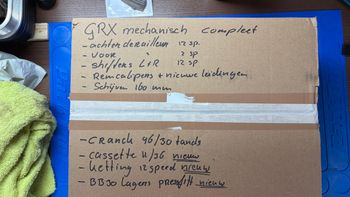 GRX mechanisch compleet
- achterderailleur 12 sp.
- voor " 2 sp
- shifters L+R 12 sp
- Remcalipers + nieuwe leidingen
- Schijven 160 mm
- Cranck 46/30 tands
- cassette 11/36 nieuw
- ketting 12 speed nieuw
- BB30 lagers pressfitt nieuw